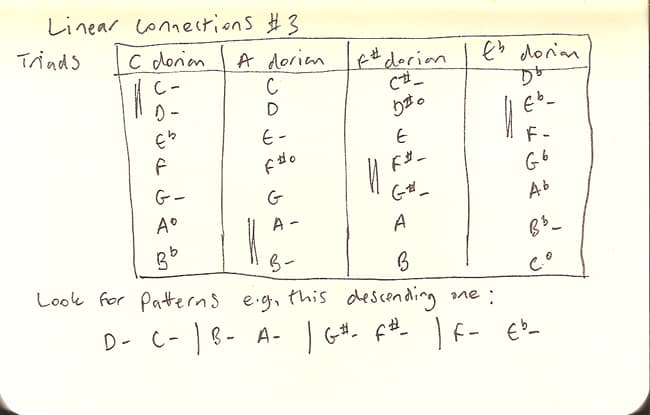 Linear Connections #3
Triads
C dorian A dorian F# dorian Eb dorian
C- C C#- Db
D- D D#o Eb-
Eb E- E F-
F F#o F#- Gb
G- G G#- Ab
Ao A- A Bb-
Bb B- B Co
Look for patterns e.g, this descending one:
D- C- | B- A- | G#- F#- | F- Eb-